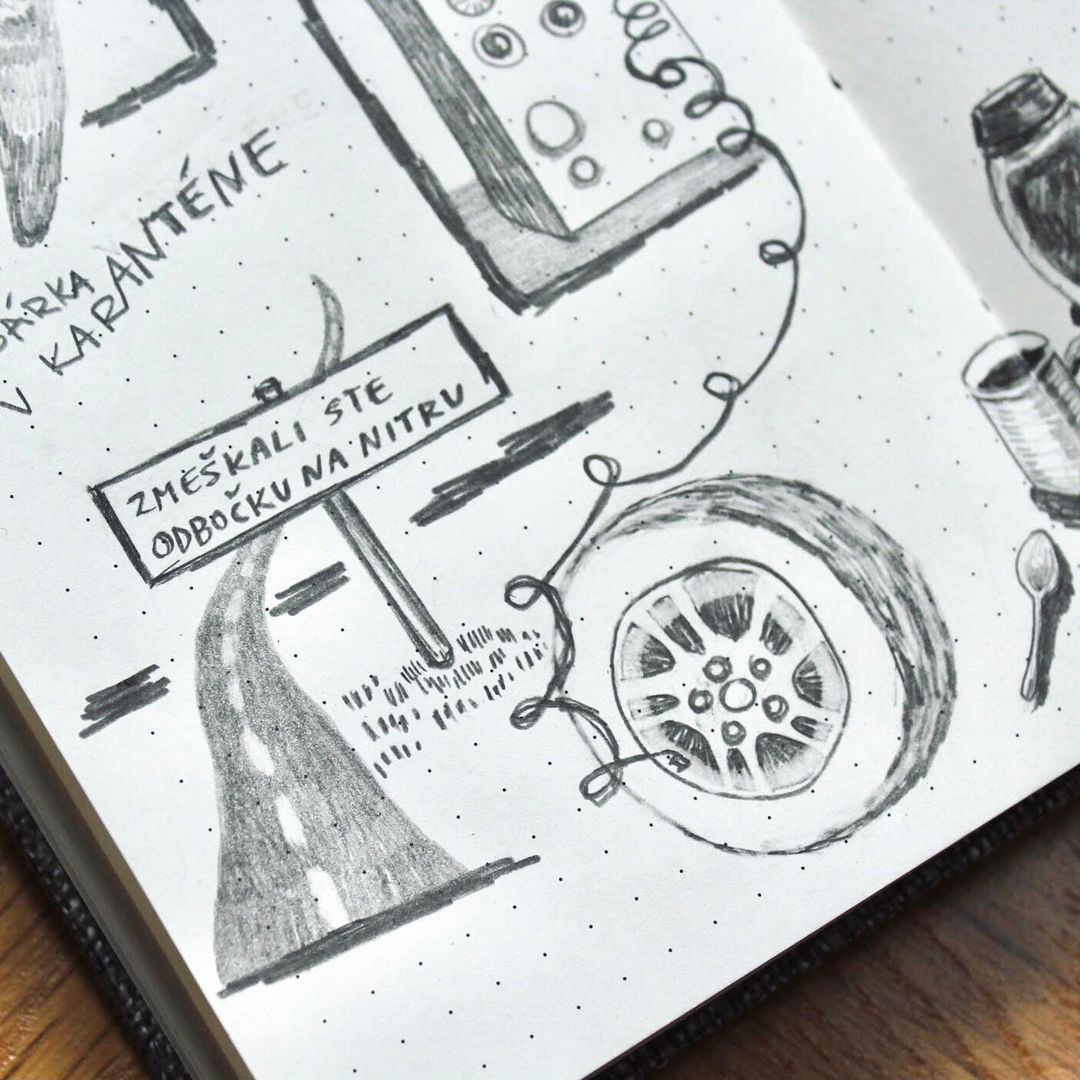 KARANTÉNE
V
ZMEŠKALI STE
ODBOČKU NA NITRU